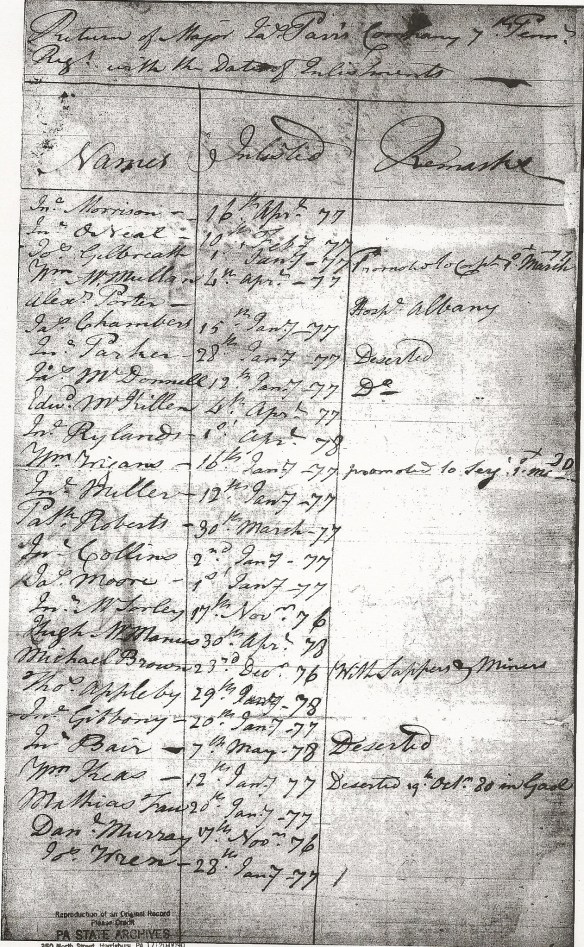 Return of Major Jas. Parr's Company 7th Penna.
Regt. with the Date of Inlistments
Names Inlisted Remarks
Jno. Morrison - 16th Apr. 77
Jno. O Neal - 10th Feby 77
Jos. Gilbreath 1st Jany - 77 Promoted to Corpl. 1st March 77
Wm. McMullan 4th Apr. - 77
Alexr. Porter - Hospl. Albany
Jas. Chambers 15th Jany - 77
Jno. Parker - 28th Jany - 77 Deserted
Jas. McDonnell 12th Jany - 77 Do
Edwd. McKillen 4th Apr. 77
Jno. Rylands - 1st Apr. 78
Wm. - 16th Jany - 77 promoted to Serj. 1st
Jno. Miller - 12th Jany - 77
Patk. Roberts - 30th March - 77
Jno. Collins 2nd Jany - 77
Jas. Moore - 1st Jany - 77
Jno. McSorley 17th Novr. 76
Hugh McManus 30th Apr. 78
Michael Brown 23rd Decr. 76 With Sappers & Miners
Thos. Appleby 29th Jany - 78
Jno. Gibbony - 20th Jany - 77
Jno. Bair - 7th May - 78 Deserted
Wm. Keas - 12th Jany 77 Deserted 19th Octr. 80 in Gaol
Mathias 20th Jany - 77
Danl. Murray 17th Novr. 76
Jos. Wren - 28th Jany - 77
Reproduction of an Original Record
Please Credit
PA STATE ARCHIVES
350 North Street, Harrisburg, PA 17120-0090